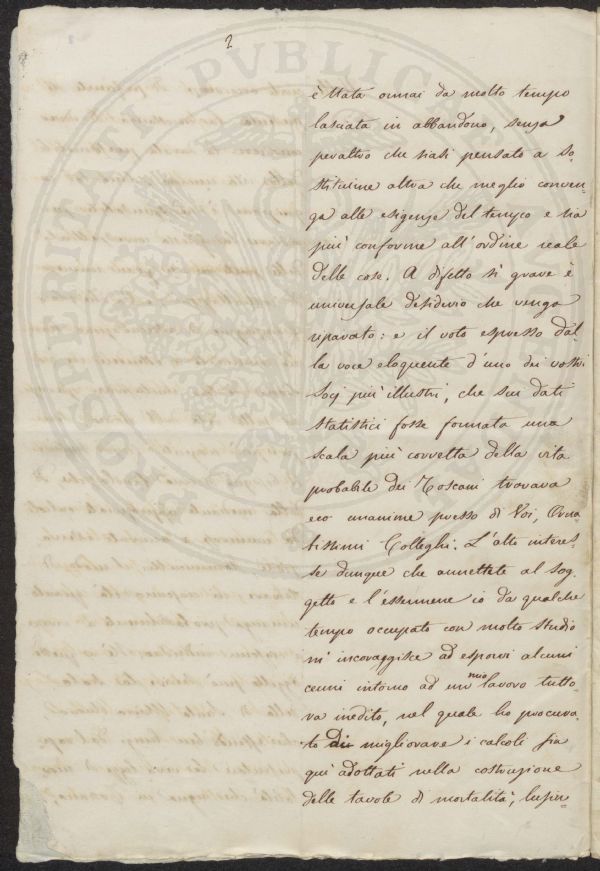 2
è stata ormai da molto tempo
lasciata in abbandono, senza
peraltro che siasi pensato a so-
stituirne altra che meglio conven-
ga alle esigenze del tempo e sia
più conforme all'ordine reale
delle cose. A difetto sì grave è
universale desiderio che venga
riparato: e il voto espresso dal-
la voce eloquente d'uno dei vostri
Socj più illustri, che sui dati
statistici fosse formata una
scala più corretta della vita
probabile dei Toscani trovava
eco unanime presso di Voi, Orna
tissimi Colleghi. L'alto interes-
se dunque che annettete al sog-
getto e l'essermene io da qualche
tempo occupato con molto studio
m'incoraggisce ad esporvi alcuni
cenni intorno ad un mio lavoro tutto-
ra inedito, nel quale ho procura-
to di migliorare i calcoli fin
quì adottati nella costruzione
delle tavole di mortalità;